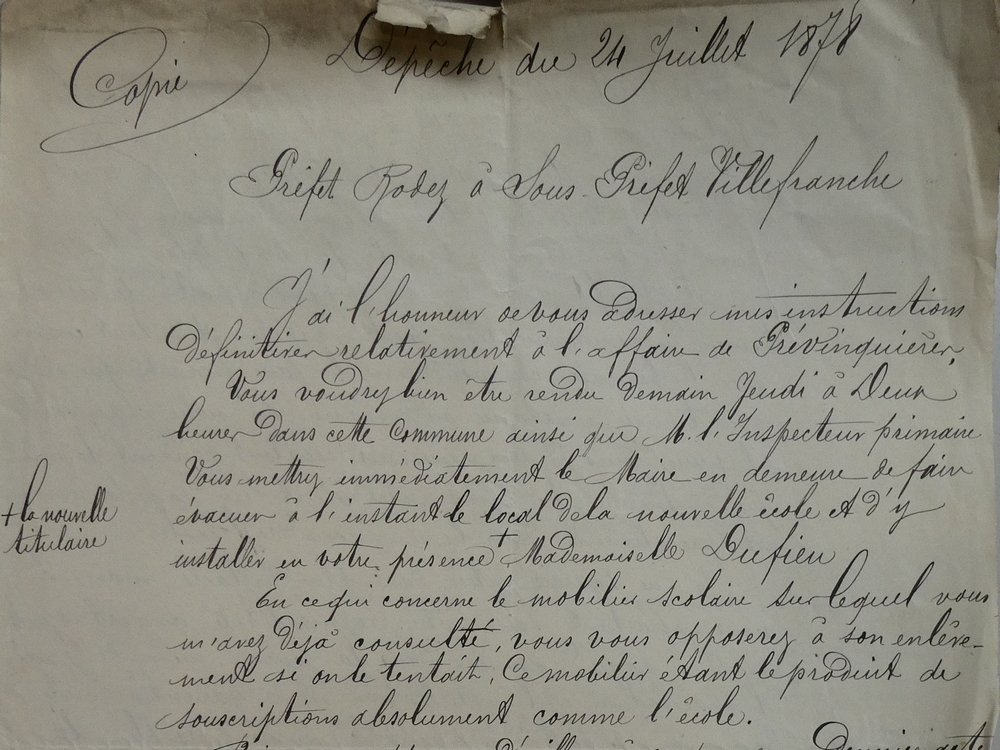 Copie
Dépêche du 24 Juillet 1878
Préfet Rodez à Sous-Préfet Villefranche
J'ai l'honneur de vous adresser mes instructions
définitives relativement à l'affaire de Prévinquières.
Vous voudrez bien être rendu demain Jeudi à Deux
heures dans cette commune ainsi que M. l'Inspecteur primaire
Vous mettrez immédiatement le Maire en demeure de faire
évacuer à l'instant le local de la nouvelle école et d'y
installer en votre présence + Mademoiselle Dufieu
+ la nouvelle
titulaire
En ce qui concerne le mobilier scolaire sur lequel vous
m'avez déjà consulté, vous vous opposerez à son enlève-
ment si on le tentait, Ce mobilier étant le produit de
souscriptions absolument comme l'école.